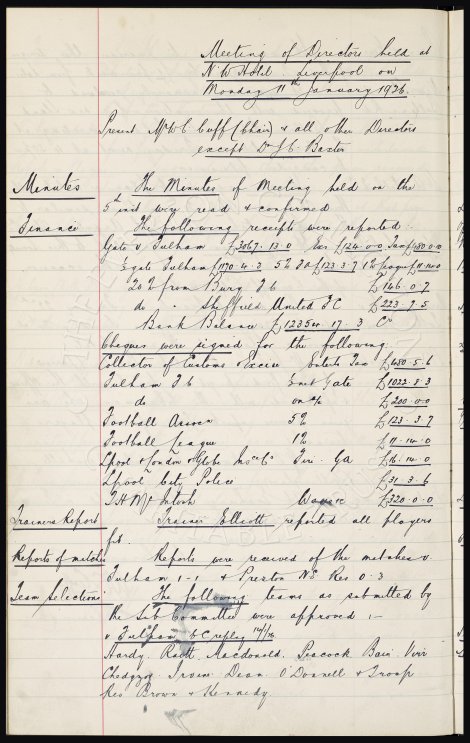 Meeting of Directors held at
N W Hotel Liverpool on
Monday 11th January 1926.
Present Mr W C Cuff (Chair) & all other Directors
except Dr J C Baxter
Minutes The Minutes of Meeting held on the
5th inst were read & confirmed
Finance The following receipts were reported:-
Gate v Fulham £3067.13.0 £124.0.0 £180.0.0
½ gate Fulham £1170.4.3 5% Fa £123.3.7 1% League £11.14.0
20% from Bury Fc £146.0.7
do - Sheffield United FC £223.7.5
Bank Balance £12354.17.3 Cr
Cheques were signed for the following.
Collector of Customs & Excise Enterts Tax £480.5.6
Fulham Fc ½ net Gate £1022.8.3
do on a/c £200.0.0
Football Assocn 5% £123.3.7
Football League 1% £11.14.0
Lpool & London & Globe Insce Co Fire £16.14.0
Lpool City Police £31.3.6
T H McIntosh Wages £320.0.0
Trainers Report Trainer Elliott reported all players
fit.
Reports of matches Reports were received of the matches v
Fulham 1-1 & Preston N E Res 0.3
Team Selections The following teams as submitted by
the Sub Committee were approved :-
v Fulham E C replay 14/1/26
Hardy. Raitt. Macdonald. Peacock Bain. Virr
Chedgzoy. Irvine. Dean. O'Donnell & Troup
Res Brown & Kennedy